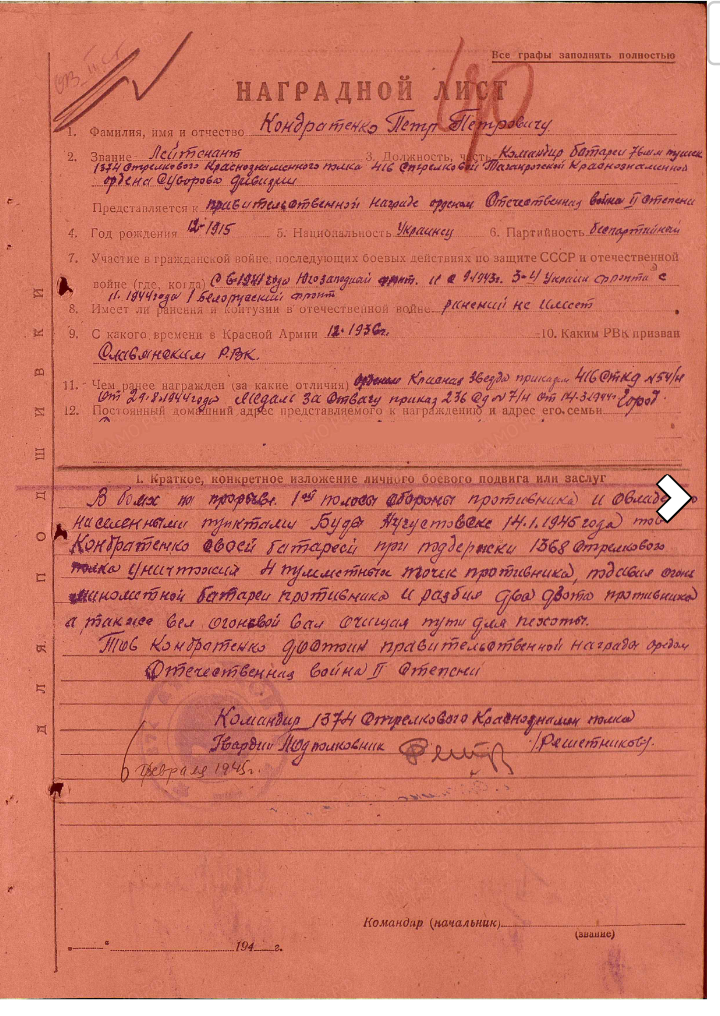 Все графы заполнять полностью
НАГРАДНОЙ ЛИСТ
1. Фамилия, имя и отчество Кондратенко Петр Петровичу
2. Звание Лейтенант 3. Должность, часть Командир батареи 76мм пушек
1374 Стрелкового Краснознаменного полка 416 Стрелковой Таганрогской Краснознаменной
ордена Суворова дивизии
Представляется к правительственной награде орденом Отечественная война II Степени
4. Год рождения 12-1915 5. Национальность Украинец 6. Партийность беспартийный
7. Участие в гражданской войне, последующих боевых действиях по защите СССР и отечественной
войне (где, когда) С 6-1941 года Югозападной фронт. и с 9-1943г. 3-4 Украин фронта с
11.1944 года 1 Белоруский фронт
8. Имеет ли ранения и контузии в отечественной войне ранений не имеет
9. С какого времени в Красной Армии 12-1936г. 10. Каким РВК призван
Славянским РВК.
11. Чем ранее награжден (за какие отличия) орденом Красная Звезда приказ 416 СТКД №54/н
От 29.8.1944 года Медаль За Отвагу приказ 236 сд №7/н от 14.3.1944г. Город.
12. Постоянный домашний адрес представляемого к награждению и адрес его семьи
I. Краткое, конкретное изложение личного боевого подвига или заслуг
В боях по прорыву 1ой полосы обороны противника и овладе
населенными пунктами Буды Аугустовске 14.1.1945 года тов
Кондратенко своей батареей при поддержки 1368 Стрелкового
полка уничтожил 4 пулеметных точек противника, подавил огонь
минометной батареи противника и разбил два дзота противника
а также вел огоневой вал очищая пути для пехоты.
Тов Кондратенко достоин правительственной награды орденом
Отечественная война II Степени
Командир 1374 Стрелкового Краснознамен полка
Гвардии Подполковник /Решетников/.
6 февраля 1945г.
Командир (начальник)
(звание)
194 г.
ДЛЯ ПОДШИВКИ